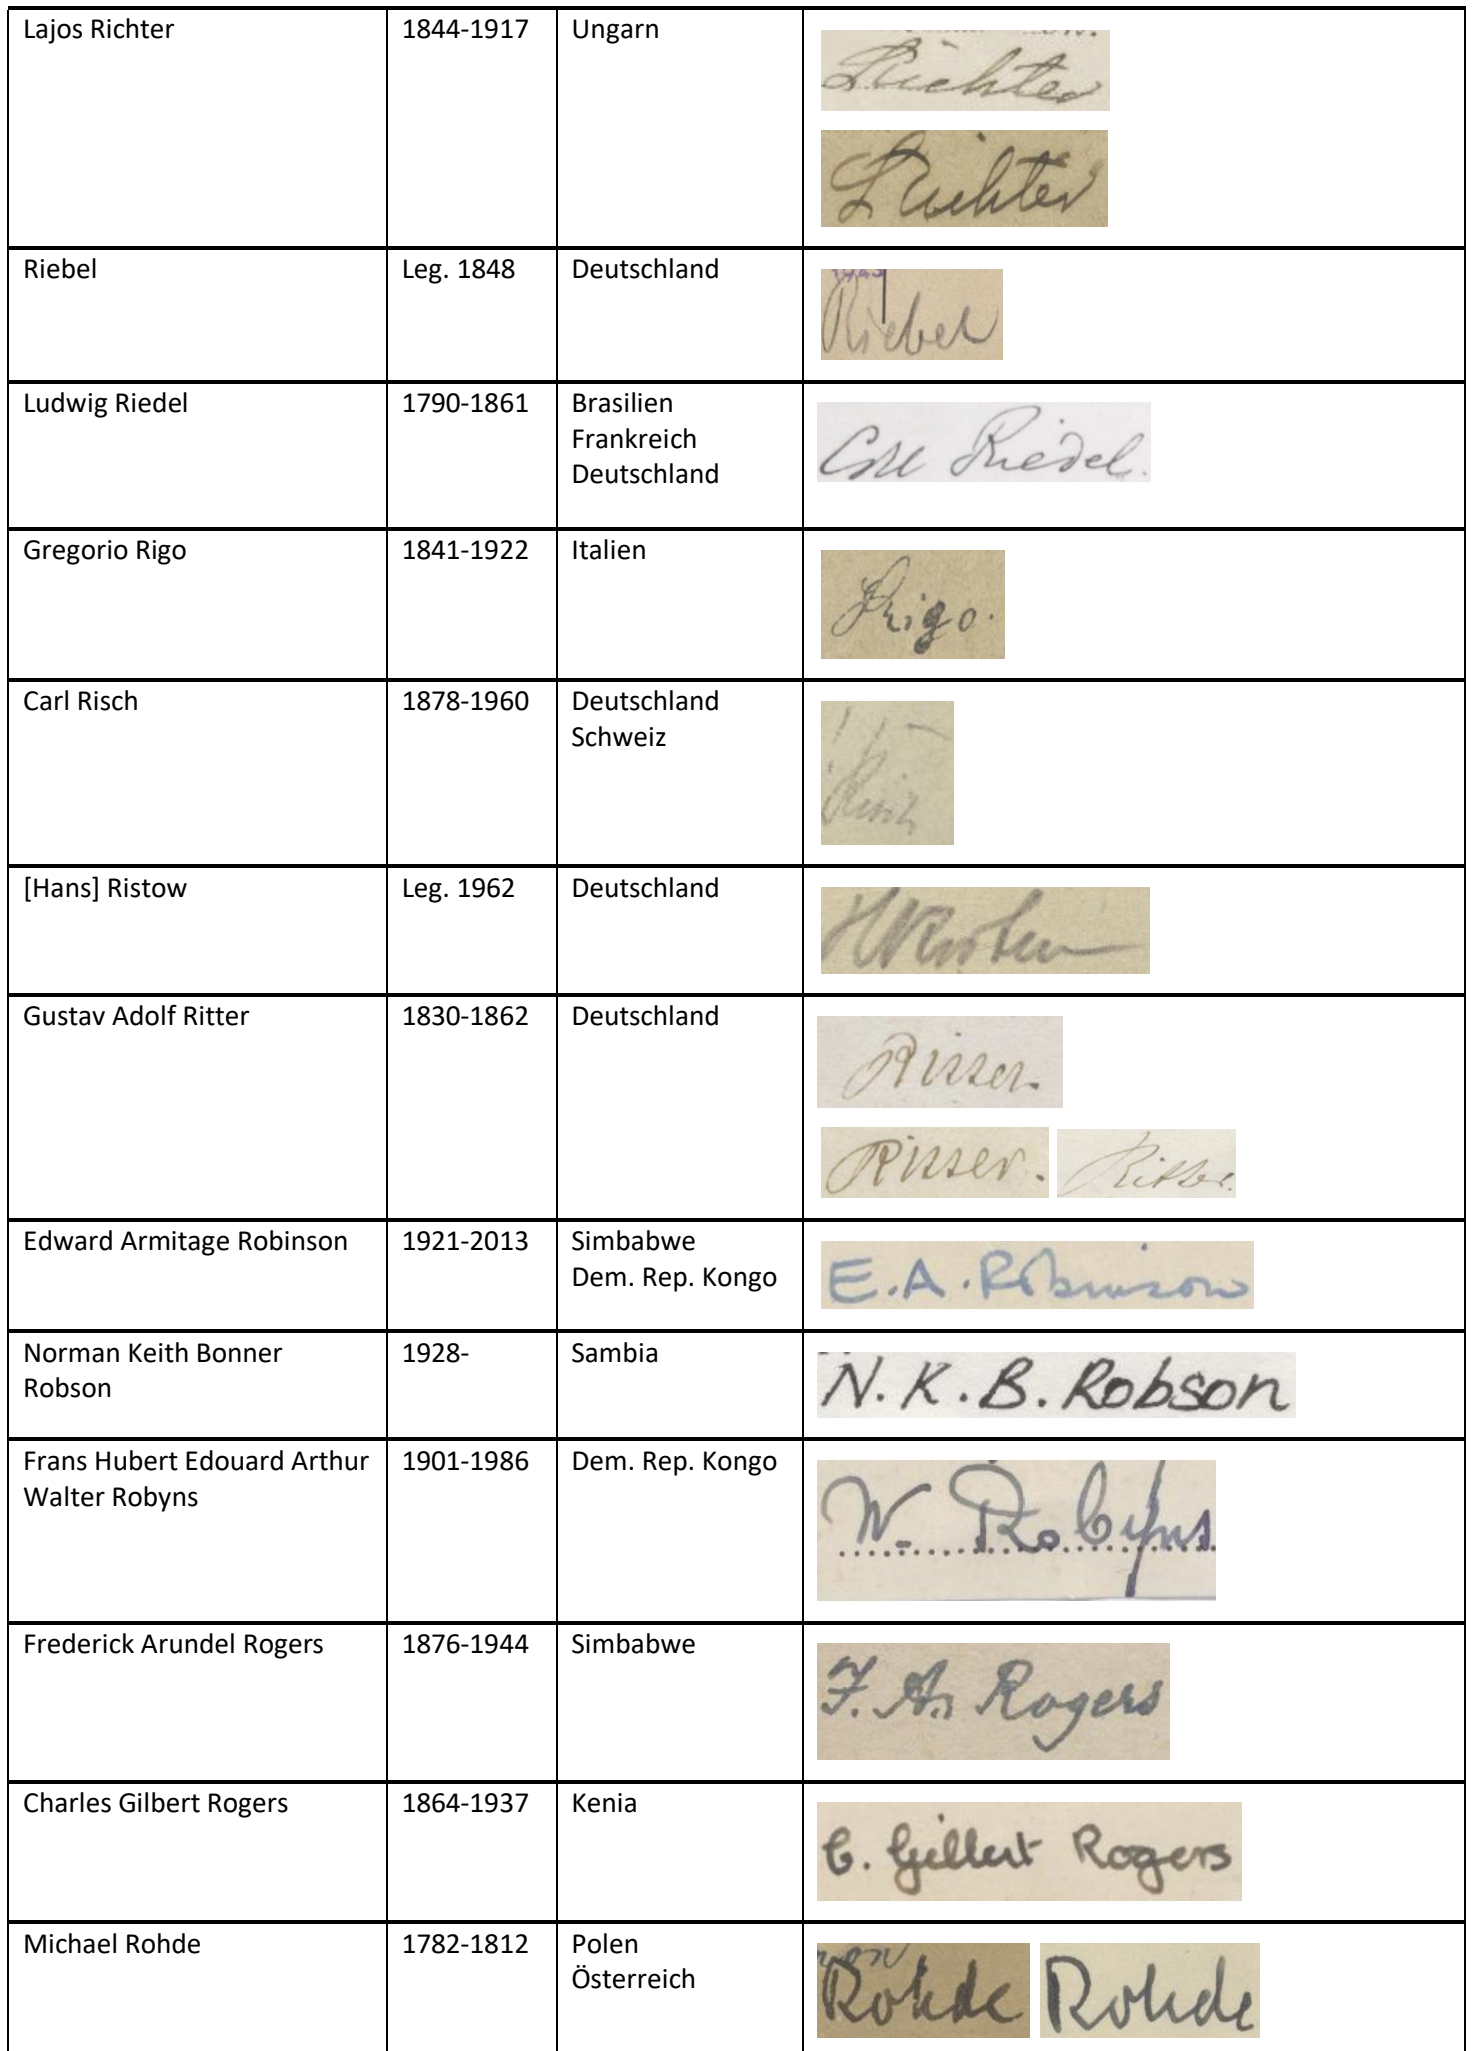 Lajos Richter 1844-1917 Ungarn
LRichter
LRichter
Riebel Leg. 1848 Deutschland
Riebel
Ludwig Riedel 1790-1861 Brasilien
Frankreich
Deutschland
Coll Riedel.
Gregorio Rigo 1841-1922 Italien
Rigo.
Carl Risch 1878-1960 Deutschland
Schweiz
Risch
[Hans] Ristow Leg. 1962 Deutschland
HRistow
Gustav Adolf Ritter 1830-1862 Deutschland
Ritter.
Ritter. Ritter.
Edward Armitage Robinson 1921-2013 Simbabwe
Dem. Rep. Kongo
E.A. Robinson
Norman Keith Bonner 1928- Sambia
Robson
N. K. B. Robson
Frans Hubert Edouard Arthur 1901-1986 Dem. Rep. Kongo
Walter Robyns
W. Robyns
Frederick Arundel Rogers 1876-1944 Simbabwe
F. A. Rogers
Charles Gilbert Rogers 1864-1937 Kenia
C. Gilbert Rogers
Michael Rohde 1782-1812 Polen
Österreich
Rohde Rohde